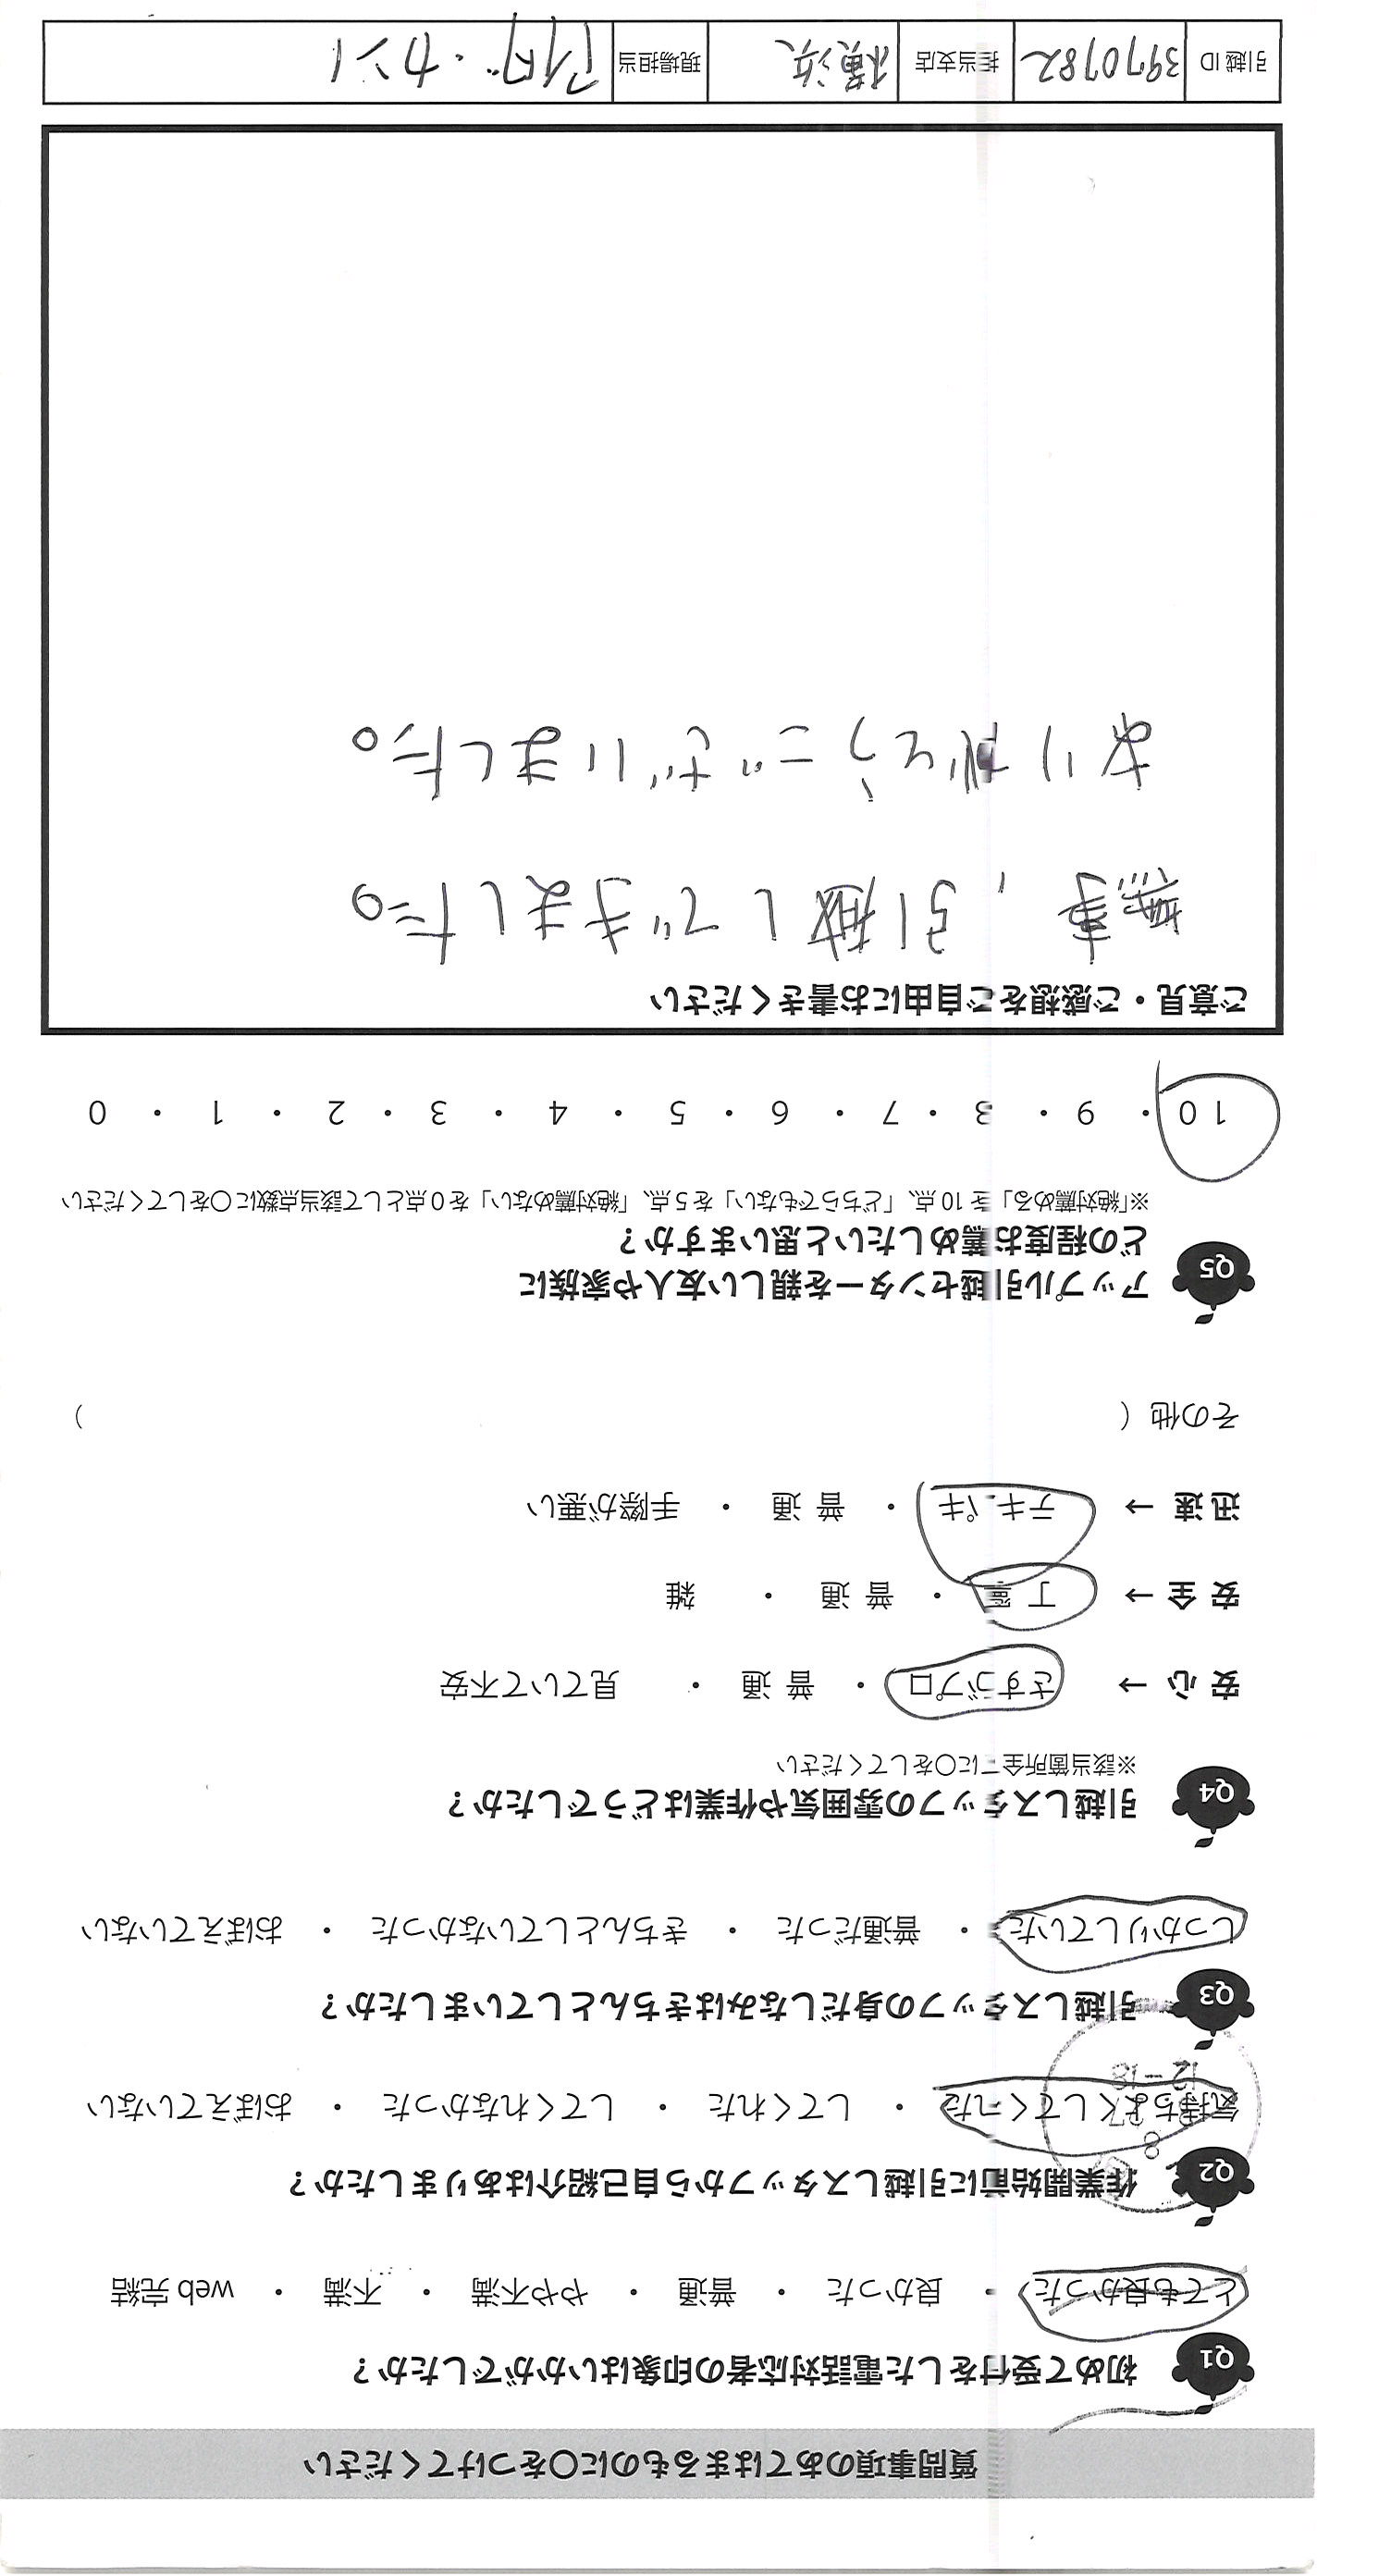 質問事項のあてはまるものに○をつけてください
Q1 初めて受付をした電話対応者の印象はいかがでしたか？
とても良かった ・ 良かった ・ 普通 ・ やや不満 ・ 不満 ・ web 完結
Q2 作業開始前に引越しスタッフから自己紹介はありましたか？
気持ちよくしてくれた ・ してくれた ・ してくれなかった ・ おぼえていない
12-18
Q3 引越しスタッフの身だしなみはきちんとしていましたか？
しっかりしていた ・ 普通だった ・ きちんとしていなかった ・ おぼえていない
Q4 引越しスタッフの雰囲気や作業はどうでしたか？
※該当箇所全てに○をしてください
安心 → さすがプロ ・ 普通 ・ 見ていて不安
安全 → 丁寧 ・ 普通 ・ 雑
迅速 → テキパキ ・ 普通 ・ 手際が悪い
その他（ ）
Q5 アップル引越センターを親しい友人や家族に
どの程度お薦めしたいと思いますか？
※「絶対薦める」を 10 点、「どちらでもない」を 5 点、「絶対薦めない」を 0 点として該当点数に○をしてください
10 ・ 9 ・ 8 ・ 7 ・ 6 ・ 5 ・ 4 ・ 3 ・ 2 ・ 1 ・ 0
ご意見・ご感想をご自由にお書きください
無事、引越しできました。
ありがとうございました。
引越 ID 3970782 担当支店 横浜 現場担当